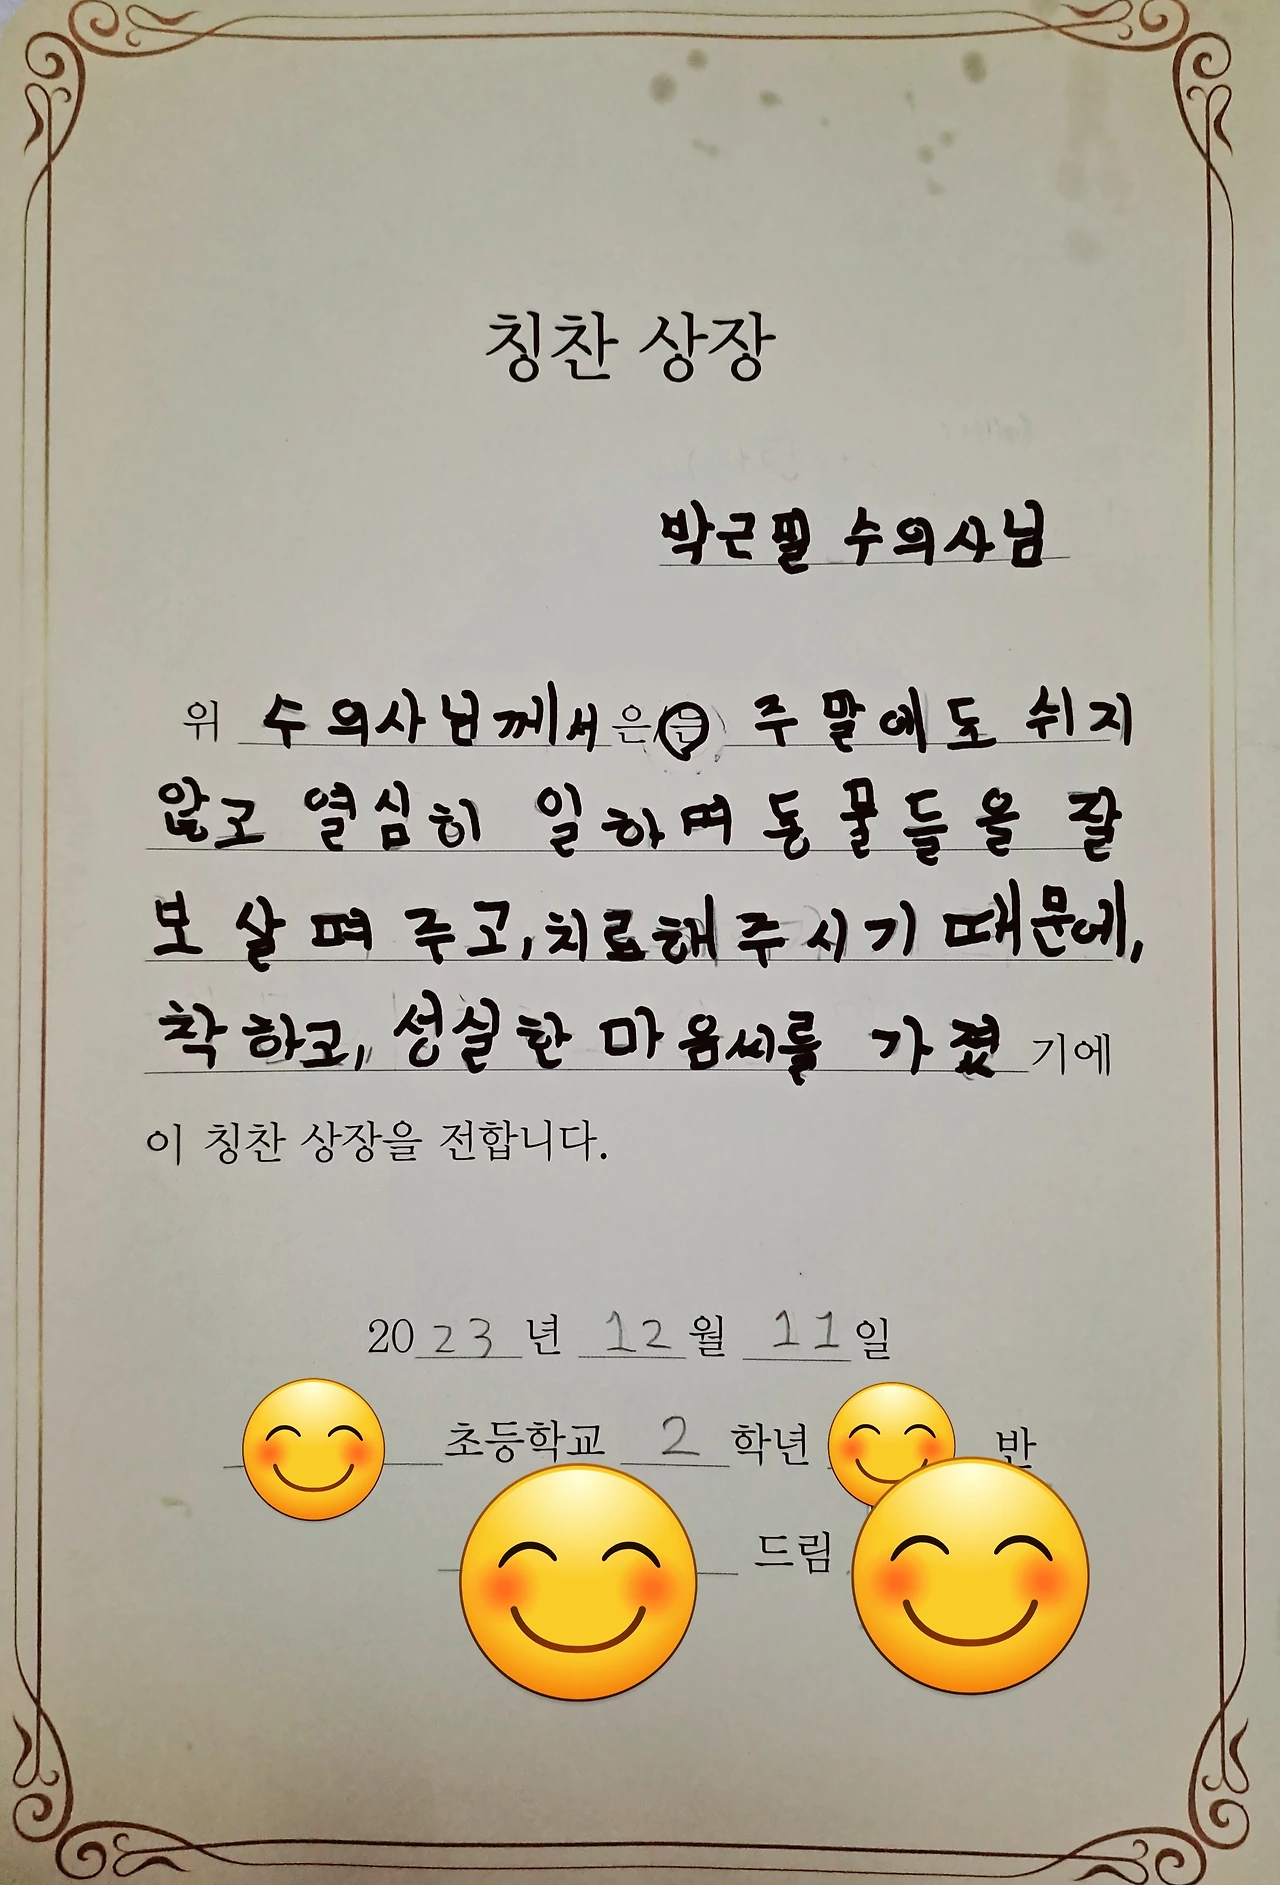 칭찬 상장
박근필 수의사님
위 수의사님께서 은(는) 주말에도 쉬지
않고 열심히 일하며 동물들을 잘
보살펴 주고, 치료해 주시기 때문에,
착하고, 성실한 마음씨를 가졌기에
이 칭찬 상장을 전합니다.
2023년 12월 11일
초등학교 2 학년 반
드림